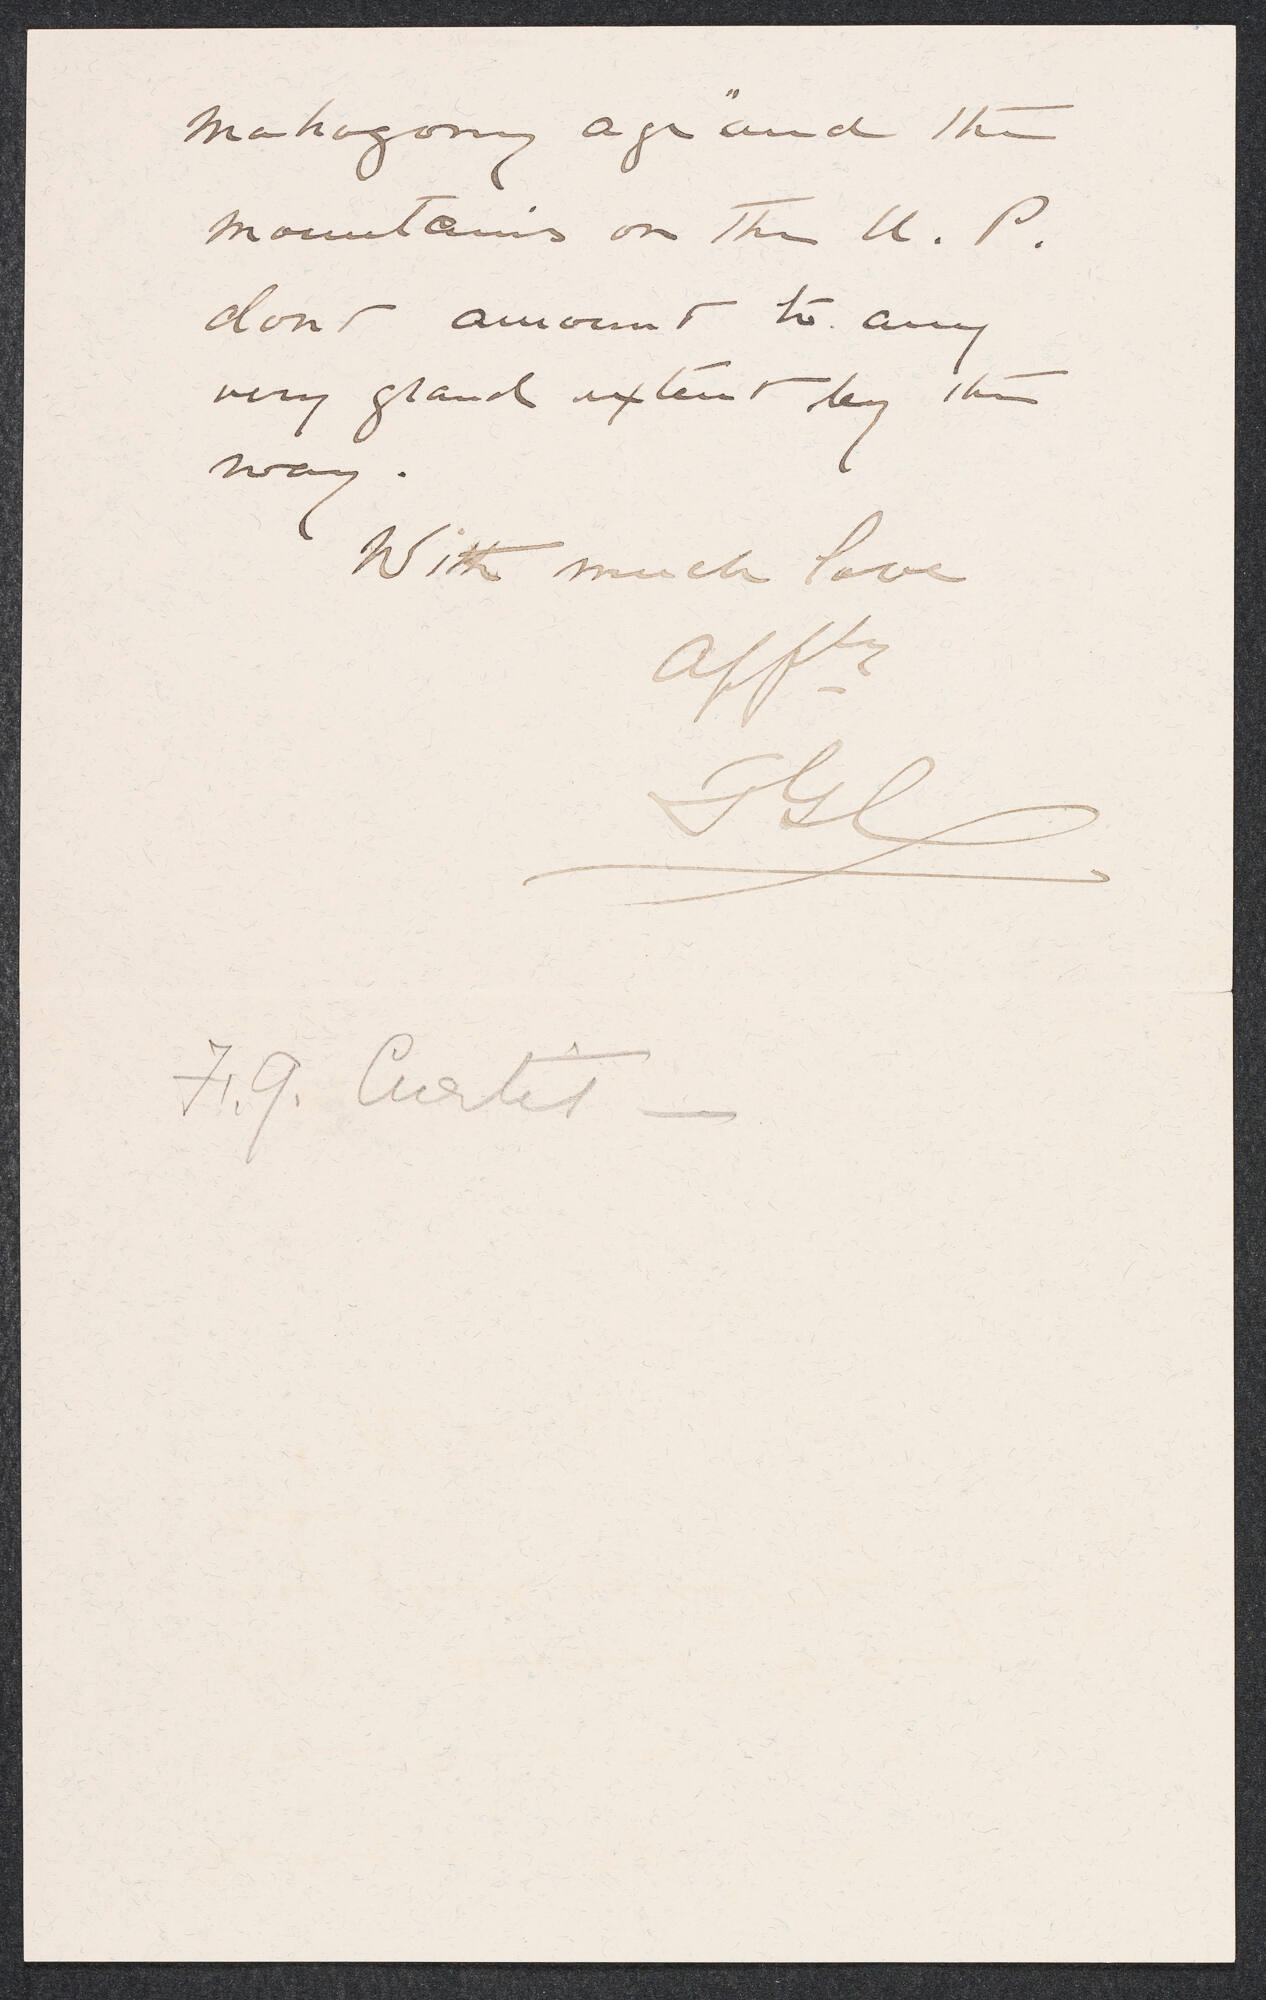 mahogony age" and the
mountains on the U. P.
dont amount to any
very grand extent by the
way.
With much love
Affty
F. G. Curtis —